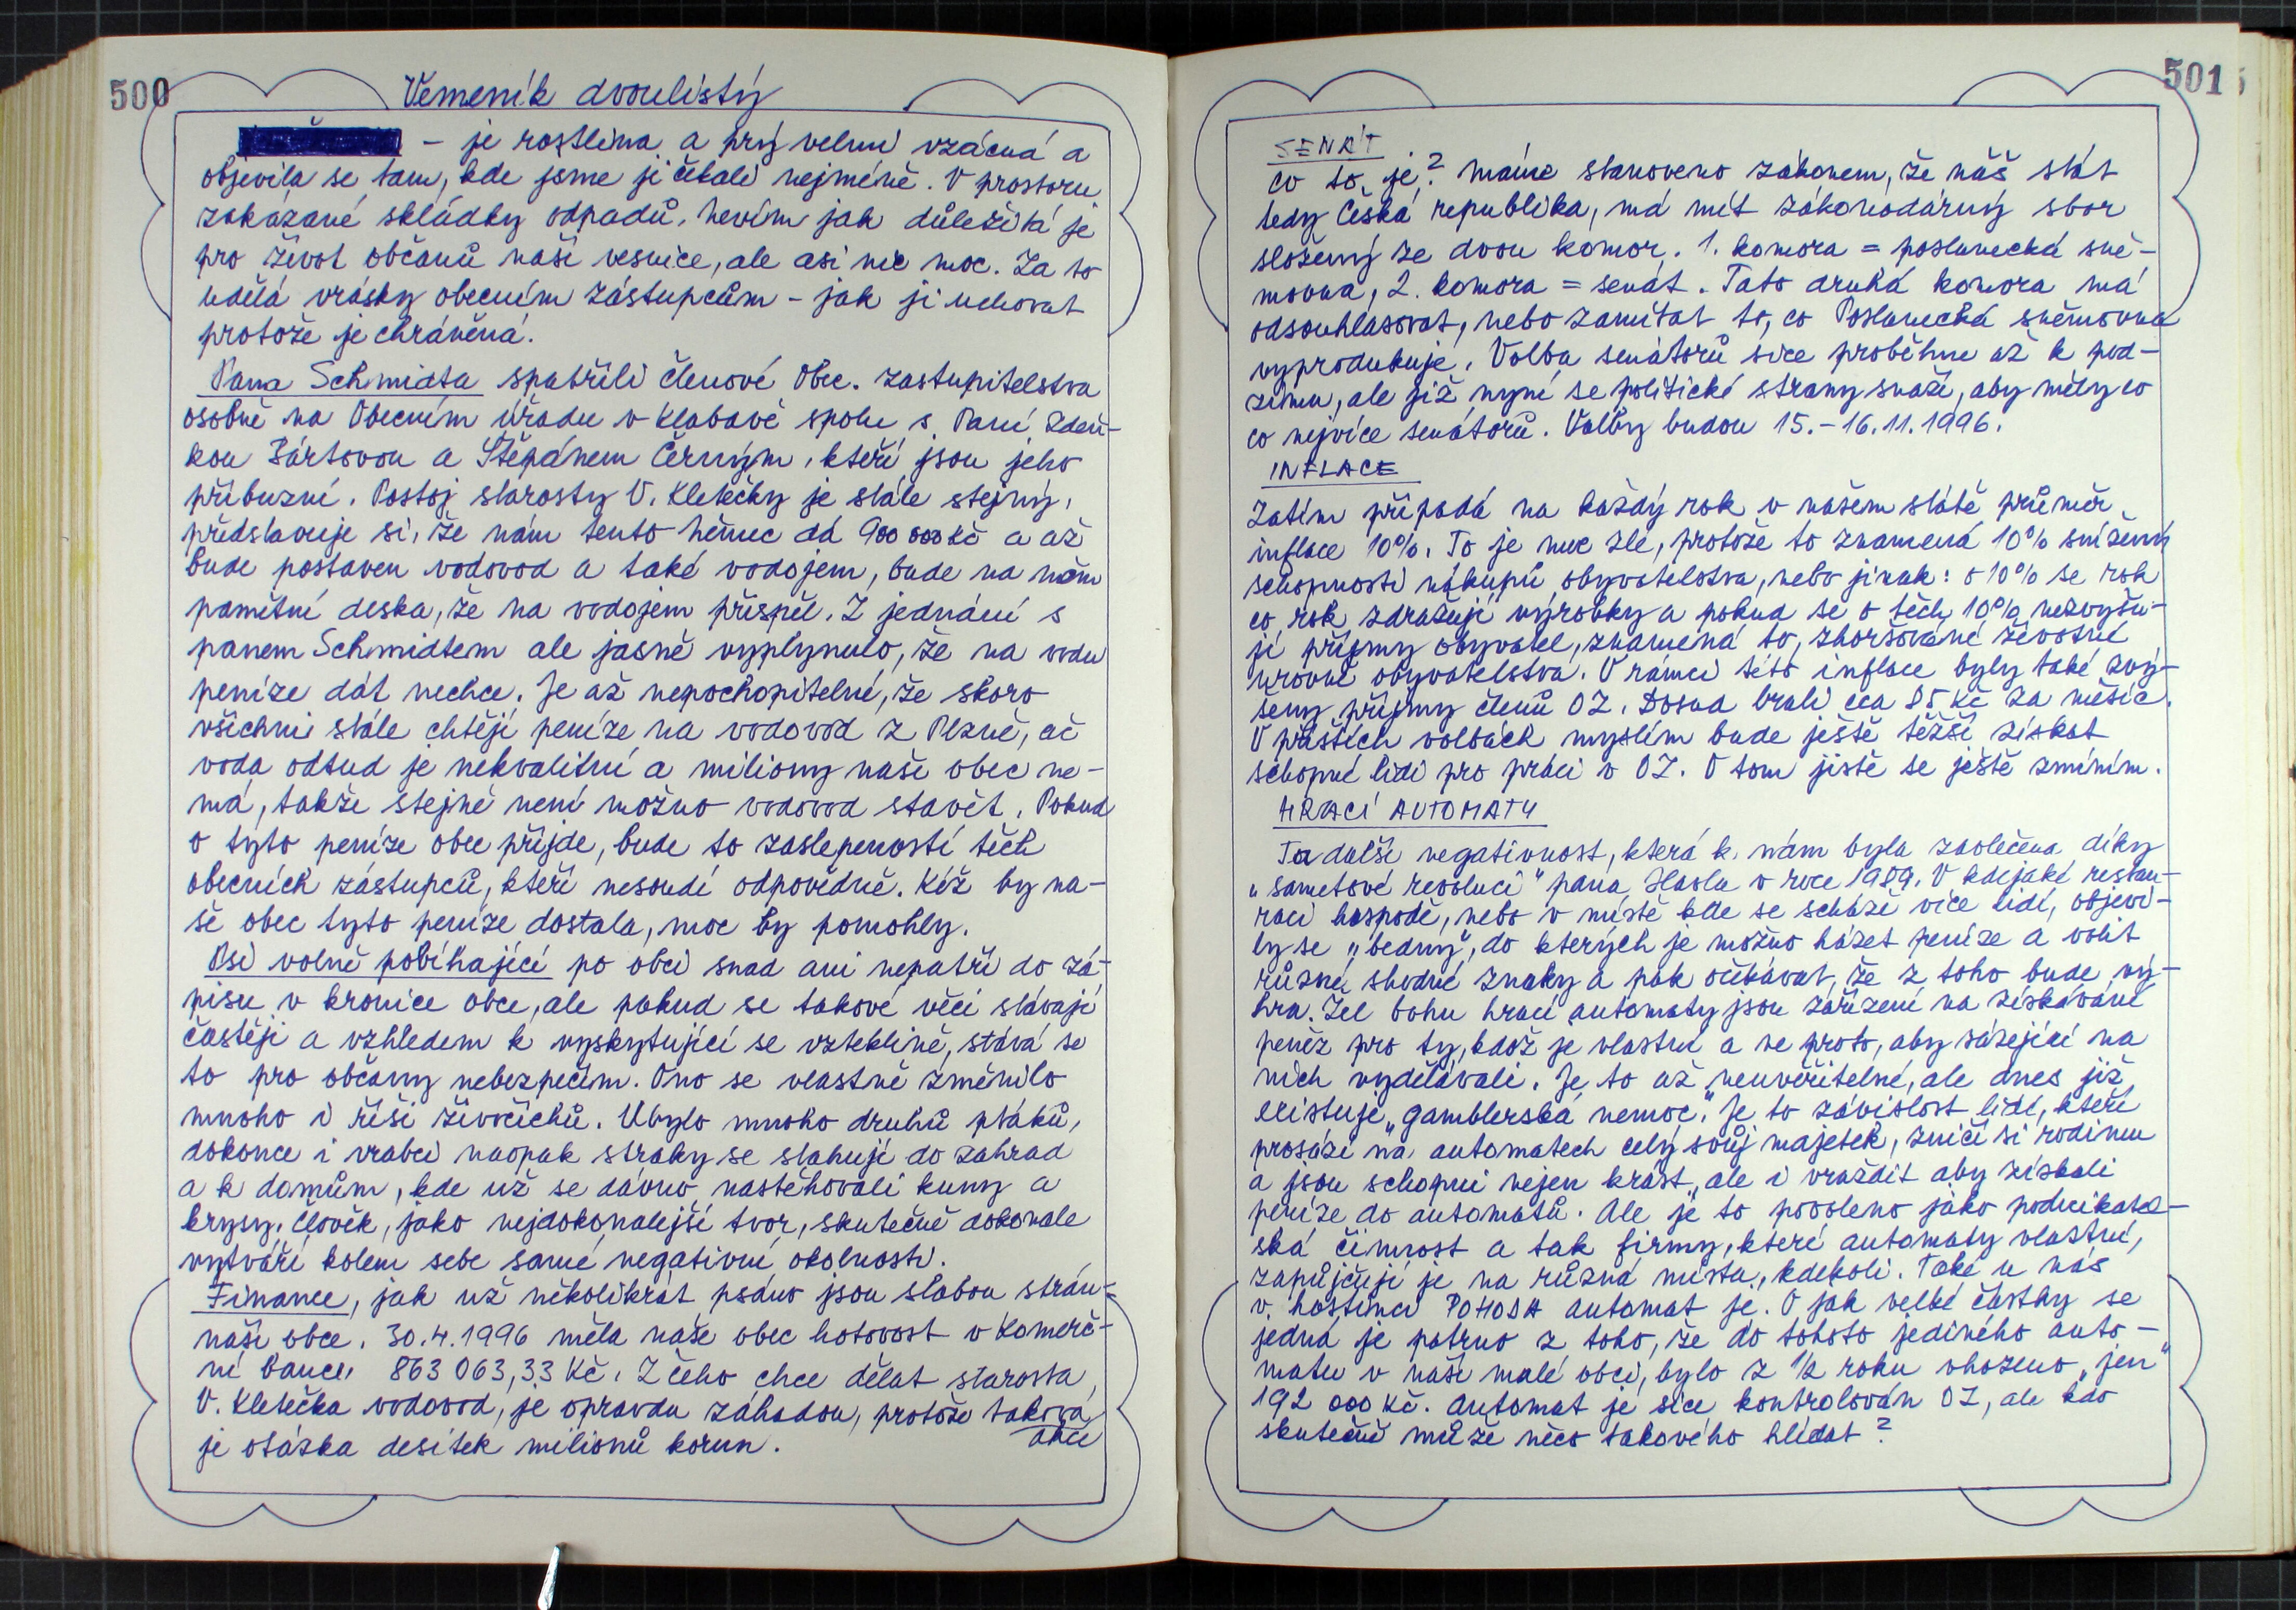 500
Vemeník dvoulistý
– je rostlina a prý velmi vzácná a
objevila se tam, kde jsme ji čekali nejméně. V prostoru
zakázané skládky odpadů. Nevím jak důležitá je
pro život občanů naší vesnice, ale asi nic moc. Za to
udělá vrásky obecním zástupcům – jak ji uchovat
protože je chráněná.
Pana Schmidta spatřili členové Obec. zastupitelstva
osobně na Obecním úřadu v Klabavě spolu s Paní Zdeň-
kou Bártovou a Štěpánem Černým, kteří jsou jeho
příbuzní. Postoj starosty V. Kletečky je stále stejný,
představuje si, že nám tento němec dá 900 000 Kč a až
bude postaven vodovod a také vodojem, bude na něm
pamětní deska, že na vodojem přispěl. Z jednání s
panem Schmidtem ale jasně vyplynulo, že na vodu
peníze dát nechce. Je až nepochopitelné, že skoro
všichni stále chtějí peníze na vodovod z Plzně, ač
voda odtud je nekvalitní a miliony naše obec ne-
má, takže stejně není možno vodovod stavět. Pokud
o tyto peníze obec přijde, bude to zaslepeností těch
obecních zástupců, kteří nesoudí odpovědně. Kéž by na-
še obec tyto peníze dostala, moc by pomohly.
Psi volně pobíhající po obci snad ani nepatří do zá-
pisu v kronice obce, ale pokud se takové věci stávají
častěji a vzhledem k vyskytující se vzteklině, stává se
to pro občany nebezpečím. Ono se vlastně změnilo
mnoho i říši živočichů. Ubylo mnoho druhů ptáků,
dokonce i vrabci naopak straky se stahují do zahrad
a k domům, kde už se dávno nastěhovali kuny a
krysy. Člověk, jako nejdokonalejší tvor, skutečně dokonale
vytváří kolem sebe samé negativní okolnosti.
Finance, jak už několikrát psáno jsou slabou strán-
naší obce. 30.4.1996 měla naše obec hotovost v Komerč-
ní bance 863 063,33 Kč. Z čeho chce dělat starosta
V. Kletečka vodovod, je opravdu záhadou, protože taková
akce
je otázka desítek milionů korun.
501
SENÁT
co to je? Máme stanoveno zákonem, že náš stát
tedy Česká republika, má mít zákonodárný sbor
složený ze dvou komor. 1. komora = poslanecká sně-
movna, 2. komora = senát. Tato druhá komora má
odsouhlasovat, nebo zamítat to, co Poslanecká sněmovna
vyprodukuje. Volba senátorů sice proběhne až k pod-
zimu, ale již nyní se politické strany snaží, aby měly co
co nejvíce senátorů. Volby budou 15.–16.11.1996.
INFLACE
Zatím připadá na každý rok v našem státě průměr
inflace 10%. To je moc zlé, protože to znamená 10% snížení
schopnosti nákupů obyvatelstva, nebo jinak: o 10% se rok
co rok zdražují výrobky a pokud se o těch 10% nezvyšu-
jí příjmy obyvatel, znamená to, zhoršování životní
úrovně obyvatelstva. V rámci této inflace byly také zvý-
šeny příjmy členů OZ. Dosud brali cca 85 Kč za měsíc.
V příštích volbách myslím bude ještě těžší získat
schopné lidi pro práci v OZ. O tom jistě se ještě zmíním.
HRACÍ AUTOMATY
Ta další negativnost, která k nám byla zavlečena díky
„sametové revoluci" pana Havla v roce 1989. V kdejaké restau-
raci hospodě, nebo v místě kde se schází více lidí, objevi-
ly se „bedny", do kterých je možno házet peníze a volit
různé shodné znaky a pak očekávat, že z toho bude vý-
hra. Žel bohu hrací automaty jsou zařízení na získávání
peněz pro ty, kdož je vlastní a ne proto, aby sázející na
nich vydělávali. Je to až neuvěřitelné, ale dnes již
existuje „gamblerská nemoc". Je to závislost lidí, kteří
prosází na automatech celý svůj majetek, zničí si rodinu
a jsou schopni nejen krást, ale i vraždit aby získali
peníze do automatů. Ale je to povoleno jako podnikatel-
ská činnost a tak firmy, které automaty vlastní,
zapůjčují je na různá místa, kdekoli. Také u nás
v hostinci POHODA automat je. O jak velké částky se
jedná je patrno z toho, že do tohoto jediného auto-
matu v naší malé obci, bylo z 1/2 roku vhozeno „jen"
192 000 Kč. Automat je sice kontrolován OZ, ale kdo
skutečně může něco takového hlídat?